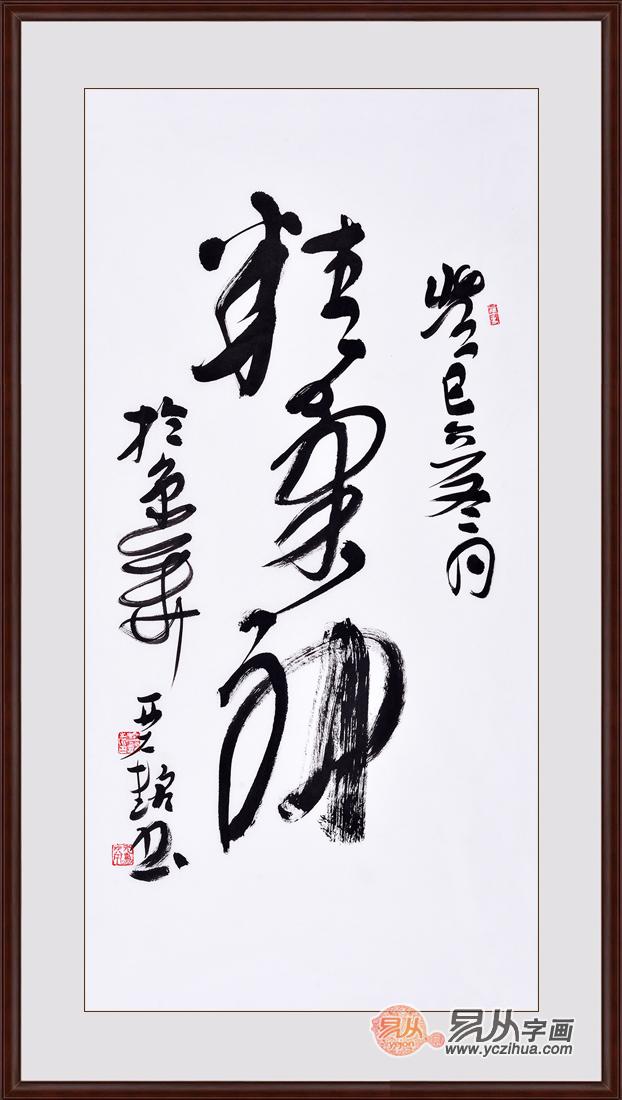 癸巳冬月
精氣神
於京華
書
易从
易从字画
www.yczihua.com